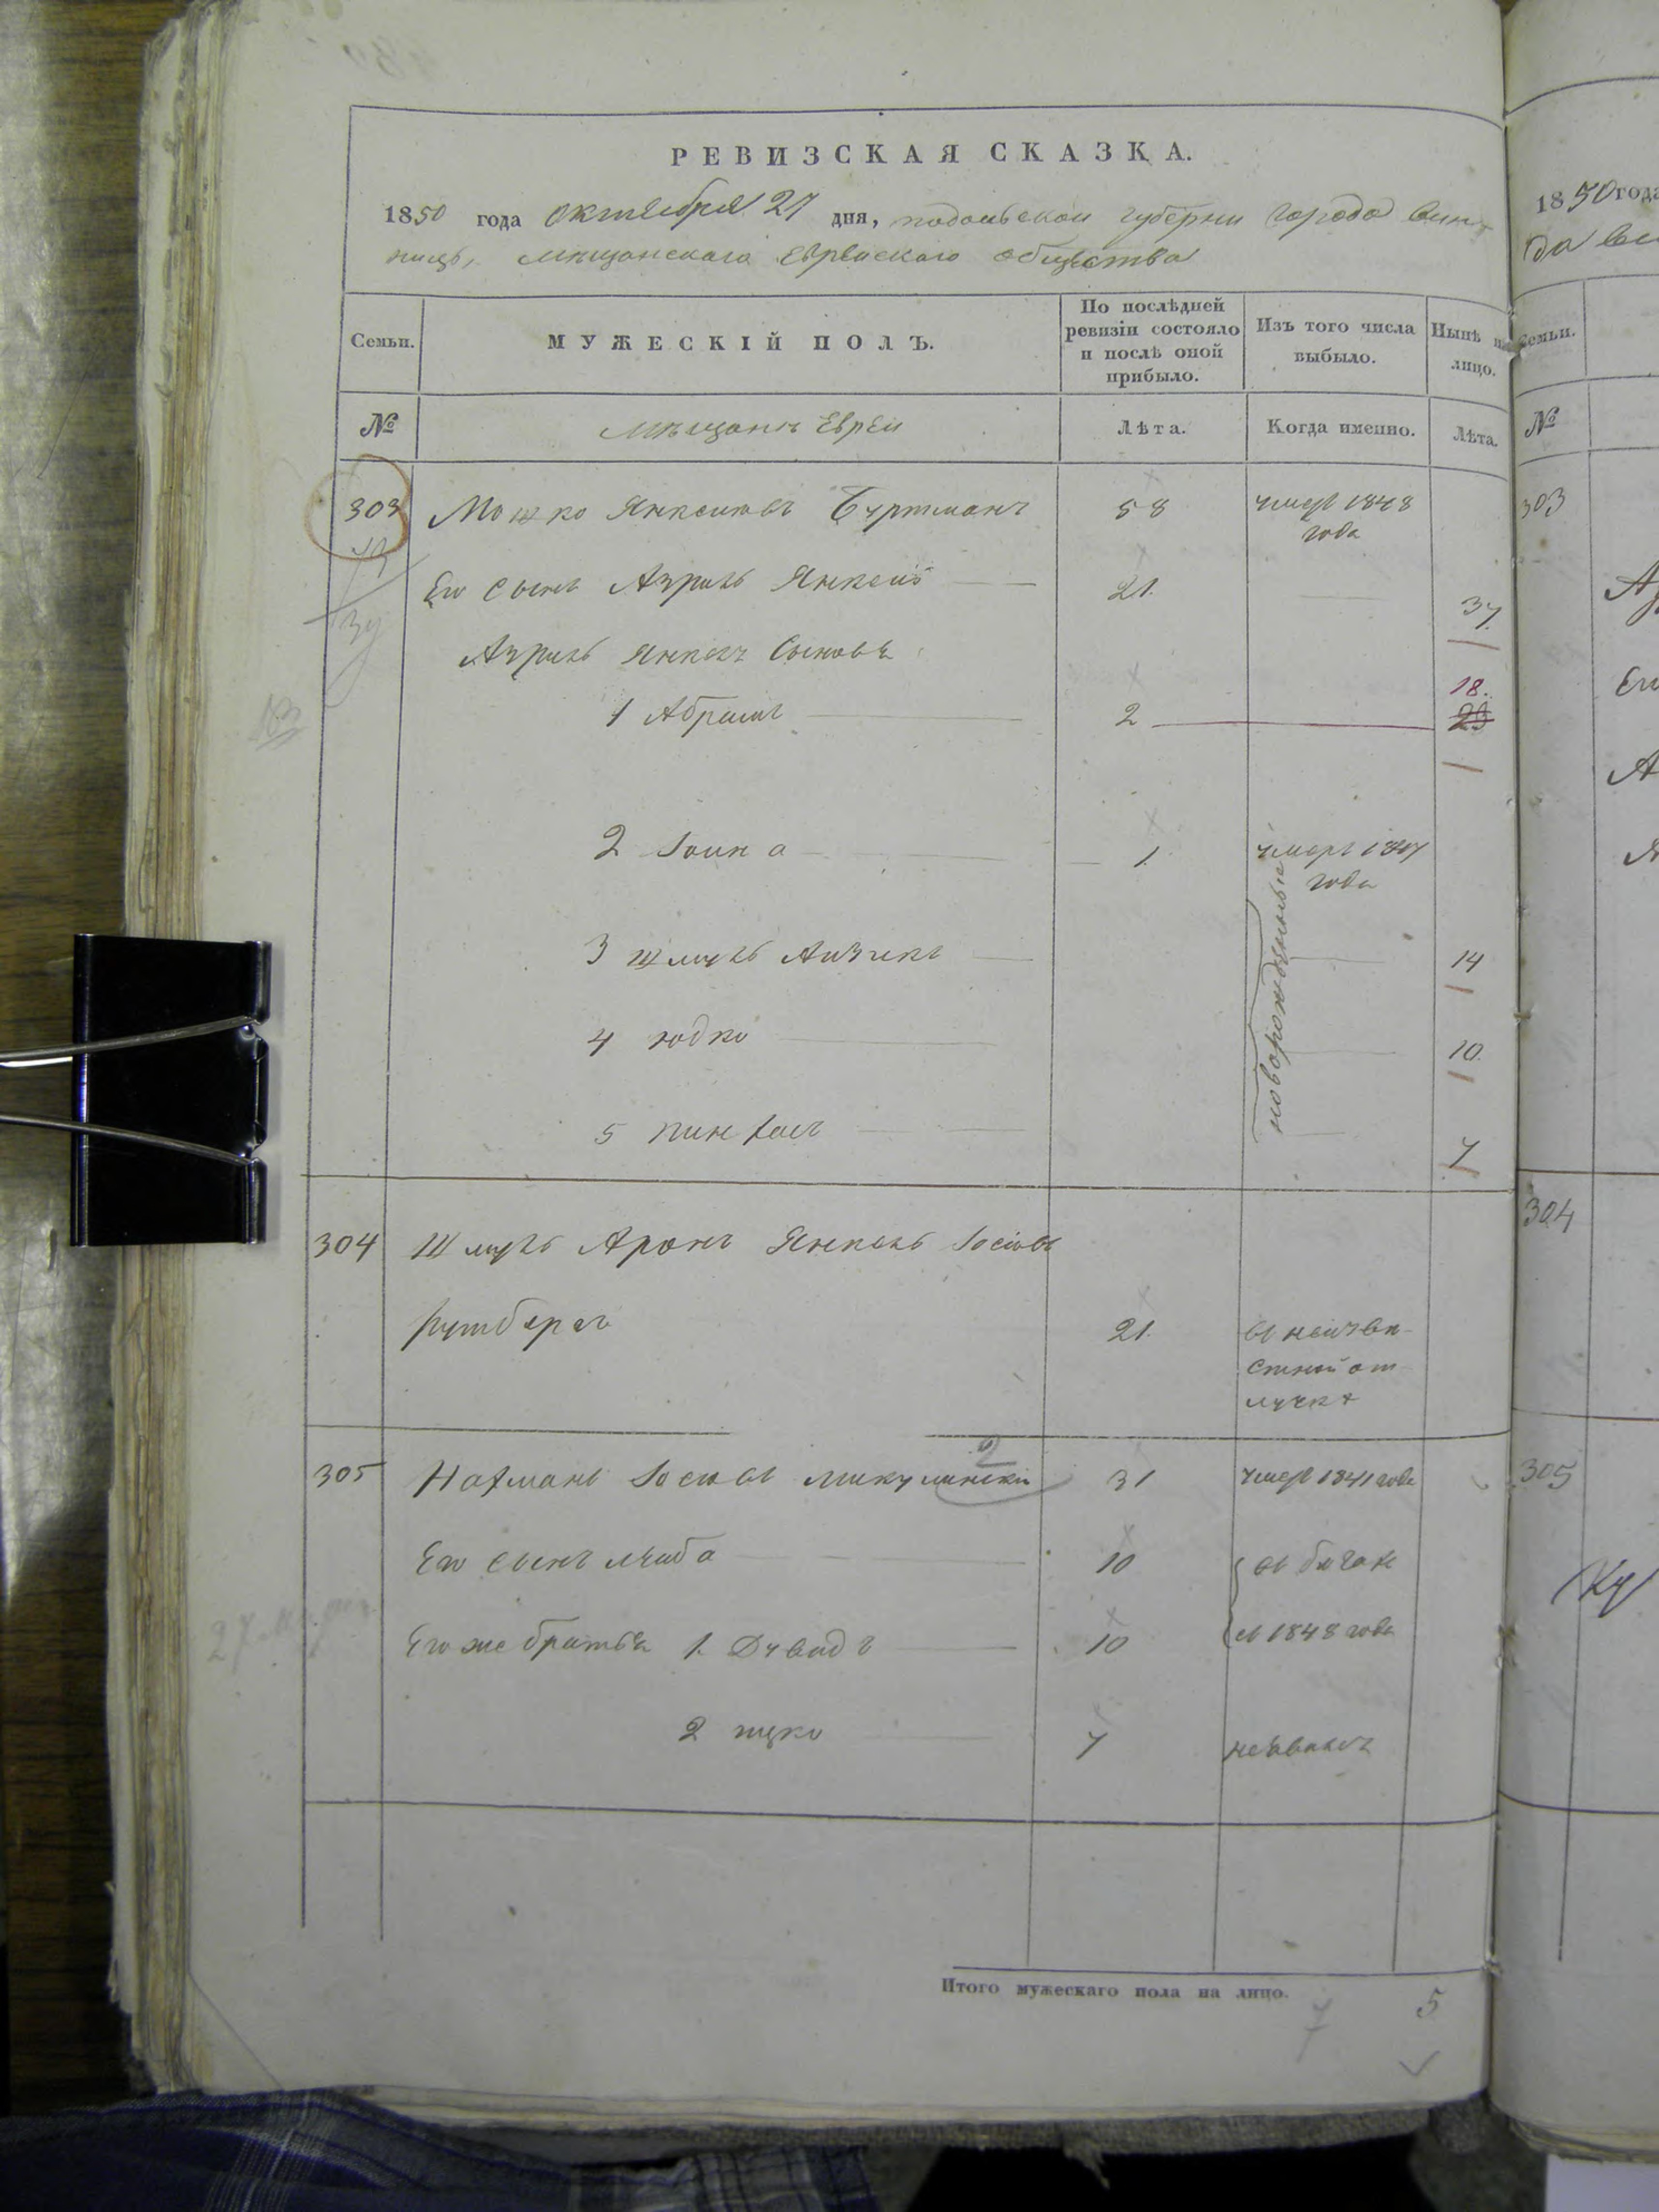 РЕВИЗСКАЯ СКАЗКА.
1850 года октября 27 дня, подольской губернии города вин-
ницы, мещанскаго Еврейскаго общества
Семьи. МУЖЕСКІЙ ПОЛЪ. По послѣдней ревизіи состояло и послѣ оной прибыло. Изъ того числа выбыло. Нынѣ на лицо.
№ мещанъ Евреи Лѣта. Когда именно. Лѣта.
303 Мошко Янкелювъ Буртманъ 58 умеръ 1848 года
Его сынъ Азриль Янкель 21. 37
Азриль Янкеля сыновья
1 Абрамъ 2 18.
2 1. умеръ года
3 Шмуль Аизикъ 14
4 Юдко новорожденные 10.
5 Пинхасъ 7
304 Шмуль Аронъ Янкель Іосіовъ
Рутберегъ 21. въ неизве-
стной от-
лучке
305 Нахманъ Іосіовъ Микулински 31 умеръ 1841 года
Его сынъ Лейба 10 въ бегах
Его же братья 1. Дувидъ 10 съ 1848 года
2 Ицко 7
Итого мужескаго пола на лицо. 5
1850 года
Семьи.
№
303
304
305